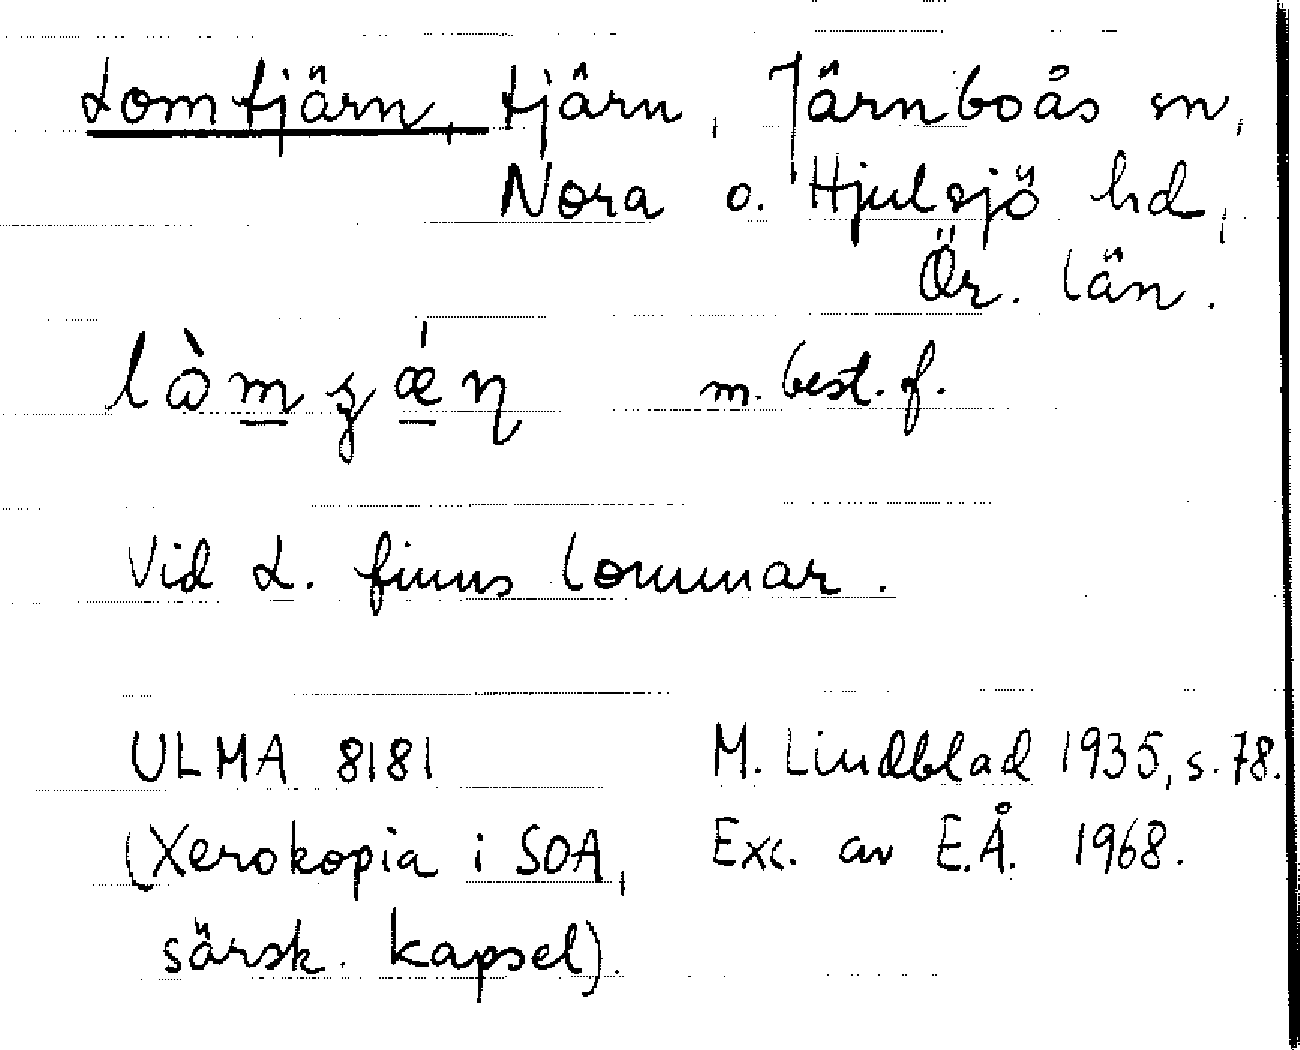 Lomtjärn, tjärn, Järnboås sn,
Nora o. Hjulsjö hd,
Ör. län.
lòmʒǽɳ m. best. f.
Vid L. finns lommar.
ULMA 8181 M. Lindblad 1935, s. 78.
(Xerokopia i SOA, Exc. av E.Å. 1968.
särsk. kapsel).